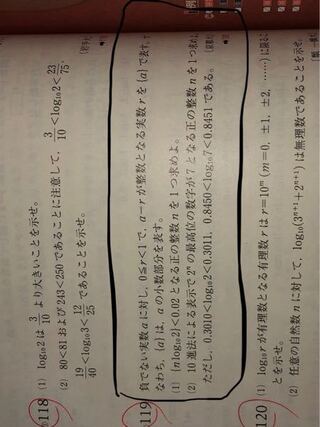 118 (1) log₁₀2 は 3/10 より大きいことを示せ。
(2) 80<81 および 243<250 であることに注意して，3/10<log₁₀2<23/75，
19/40<log₁₀3<12/25 であることを示せ。
119 負でない実数 a に対し，0≦r<1 で，a−r が整数となる実数 r を {a} で表す。す
なわち，{a} は，a の小数部分を表す。
(1) {n log₁₀2}<0.02 となる正の整数 n を 1 つ求めよ。
(2) 10 進法による表示で 2ⁿ の最高位の数字が 7 となる正の整数 n を 1 つ求めよ。
ただし，0.3010<log₁₀2<0.3011，0.8450<log₁₀7<0.8451 である。
120 (1) log₁₀r が有理数となる有理数 r は r=10ᵐ (m=0，±1，±2，……) に限るこ
とを示せ。
(2) 任意の自然数 n に対して，log₁₀(3ⁿ⁺¹+2ⁿ⁺¹) は無理数であることを示せ。